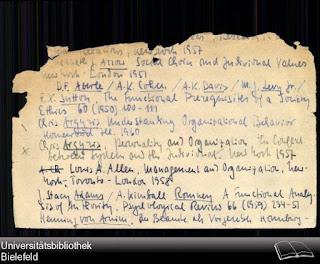 new york 1957
Kenneth J. Arrow Social Choice and Individual Values
new York - London 1951
D.F. Aberle / A.K. Cohen / A.K. Davis / M.J. Levy Jr. /
F.X. Sutton, The Functional Prerequisites of a Society
Ethics 60 (1950) 100-111
Chris Argyris Understanding Organizational Behavior
Homewood Ill. 1960
Chris Argyris, Personality and Organization The Conflict
between System and the Individual. New York 1957
Louis A. Allen, Management and Organization, new
York - Toronto - London 1958
J. Stacy Adams / A. Kimball Romney A Functional Analy-
sis of Authority. Psychological Review 66 (1959) 234-51
Henning von Arnim, Der Beamte als Vorgesetzter Hamburg-
Universitätsbibliothek
Bielefeld